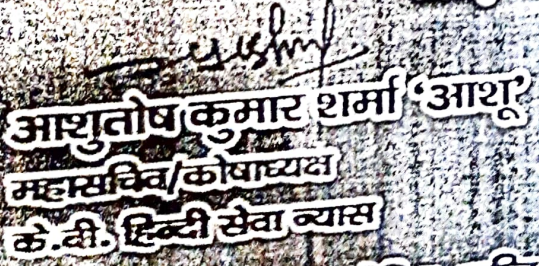 आशुतोष कुमार शर्मा ‘आशू’
महासचिव/कोषाध्यक्ष
के.वी. हिन्दी सेवा न्यास